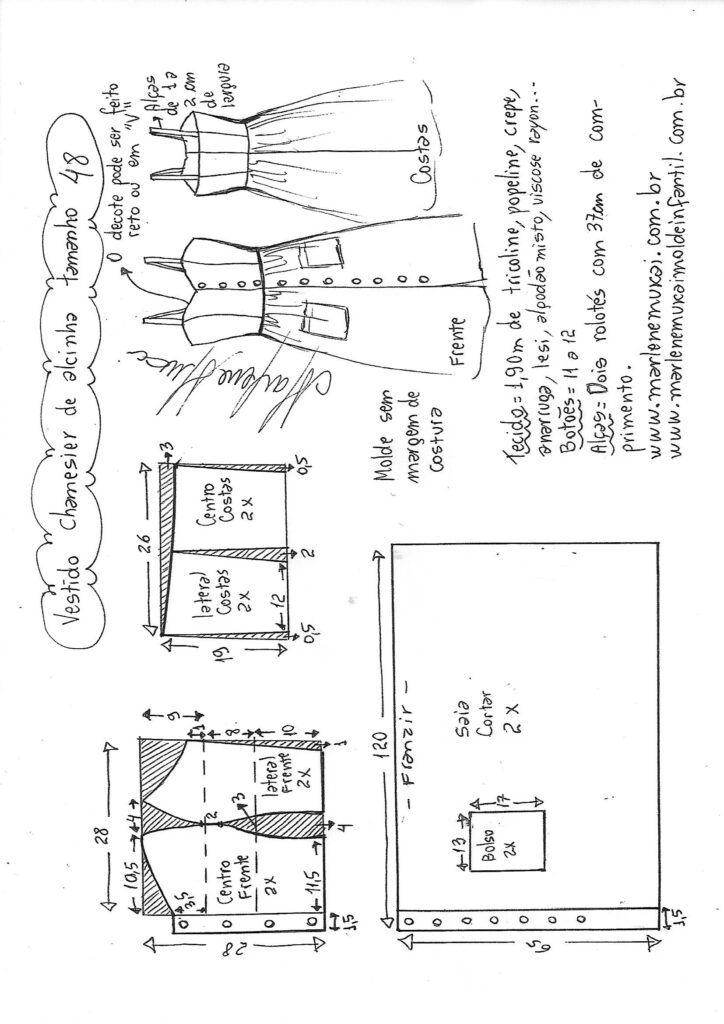 Vestido Chamesier de alcinha tamanho 48
O decote pode ser feito
reto ou em "V"
Alças
de 1 a
2 cm
de
largura
Frente
Costas
Marlene Mukai
28
10,5
4
9
1
8
10
3,5
2
3
Centro
Frente
2x
lateral
Frente
2x
11,5
4
1
28
1,5
26
3
19
lateral
Costas
2x
Centro
Costas
2x
12
0,5
2
0,5
Molde sem
margem de
costura
120
- Franzir -
Saia
Cortar
2x
13
17
Bolso
2x
1,5
Tecido = 1,90m de tricoline, popeline, crepe,
anarruga, lesi, algodão misto, viscose rayon...
Botões = 11 a 12
Alças = Dois rolotés com 37cm de com-
primento.
www.marlenemukai.com.br
www.marlenemukaimoldeinfantil.com.br